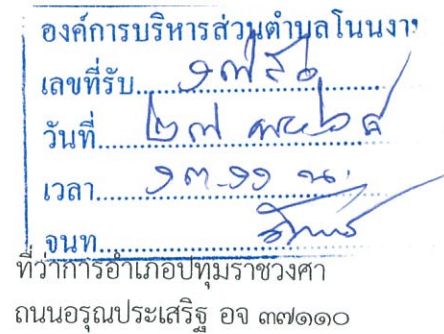 องค์การบริหารส่วนตำบลโนนงา
เลขที่รับ
วันที่ ๒๗
เวลา ๑๓.๑๑ น.
จนท.
ที่ว่าการอำเภอปทุมราชวงศา
ถนนอรุณประเสริฐ อจ ๓๗๑๑๐